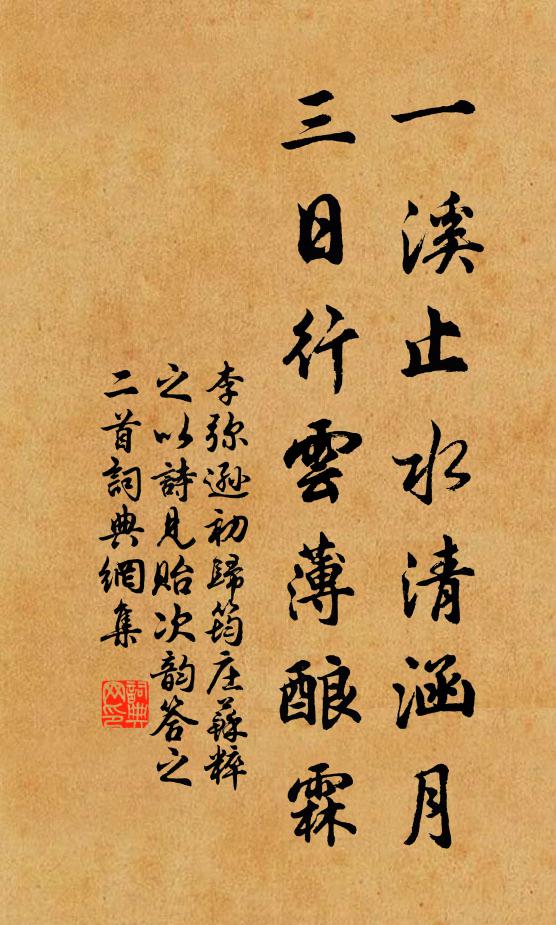 一溪止水清涵月
三日行雲薄酿霖
李弥遜初歸筠庄蘇粹
之以詩見貽次韵答之
二首詞典網集
詞典
网印